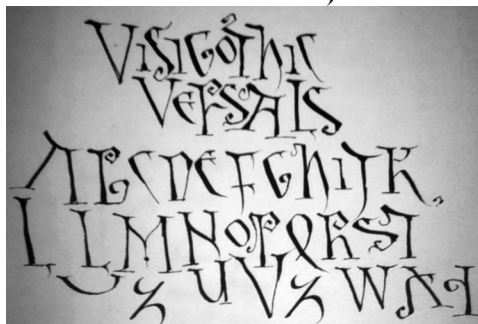 VISIGOThIC
VERSALS
ABCDEFGhIJK
LLMNOPQRST
ZUVZWXY